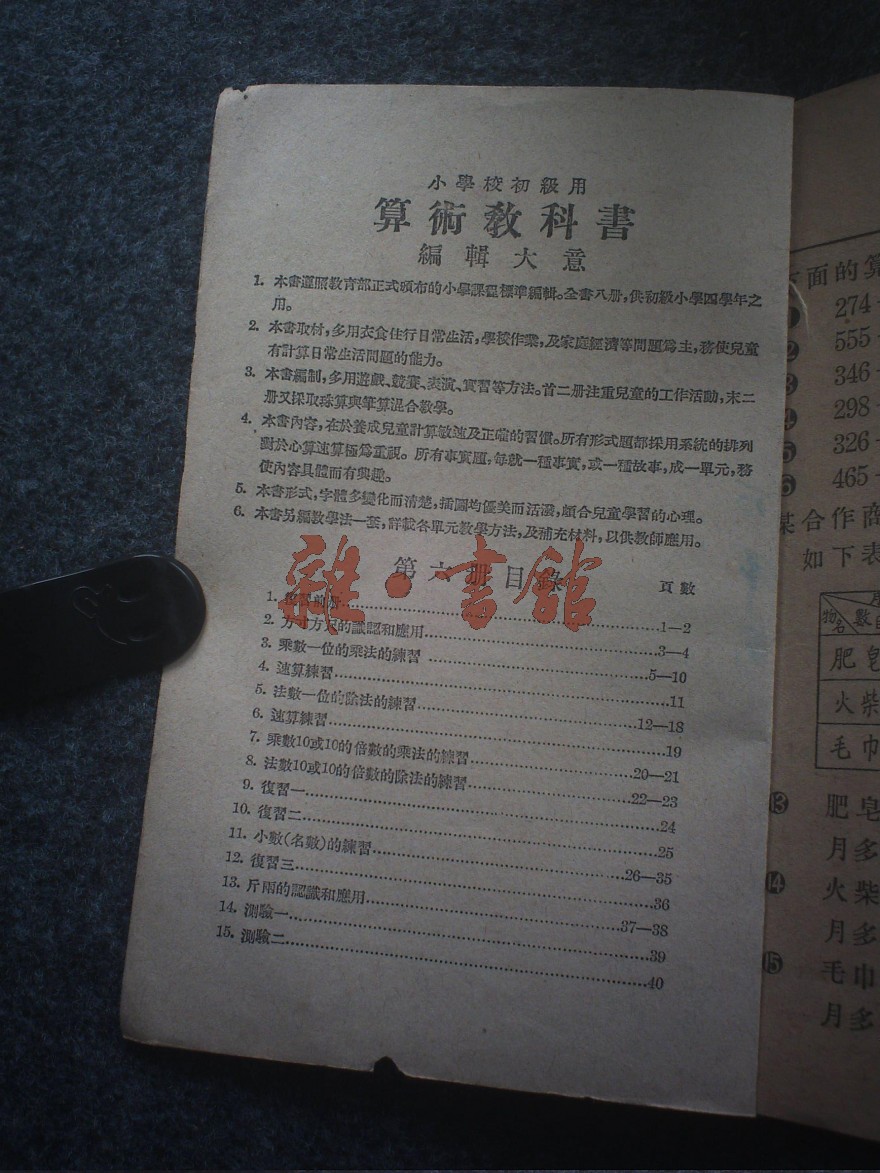 小學校初級用
算術教科書
編輯大意
1. 本書遵照教育部正式頒布的小學課程標準編輯。全書八册，供初級小學四學年之
用。
2. 本書取材，多用衣食住行日常生活，學校作業，及家庭經濟等問題爲主，務使兒童
有計算日常生活問題的能力。
3. 本書編制，多用遊戲、競賽、表演、實習等方法。首二册注重兒童的工作活動，末二
册又採取珠算與筆算混合教學。
4. 本書內容，在於養成兒童計算敏速及正確的習慣。所有形式題都採用系統的排列
對於心算速算極爲重視。所有事實題，每就一種事實，或一種故事，成一單元，務
使內容具體而有興趣。
5. 本書形式，字體多變化而清楚，插圖均優美而活潑，頗合兒童學習的心理。
6. 本書另編教學法一套，詳載各單元教學方法，及補充材料，以供教師應用。
雜·書館
第六册目錄
頁數
1. 復習前册……1—2
2. 方寸方尺的識認和應用……3—4
3. 乘數一位的乘法的練習……5—10
4. 速算練習……11
5. 法數一位的除法的練習……12—18
6. 速算練習……19
7. 乘數10或10的倍數的乘法的練習……20—21
8. 法數10或10的倍數的除法的練習……22—23
9. 復習一……24
10. 復習二……25
11. 小數(名數)的練習……26—35
12. 復習三……36
13. 斤兩的認識和應用……37—38
14. 測驗一……39
15. 測驗二……40
方面的算
274
555
346
298
326
465
某合作商
如下表
物名
數
肥皂
火柴
毛巾
13 肥皂
月多
14 火柴
月多
15 毛巾
月多